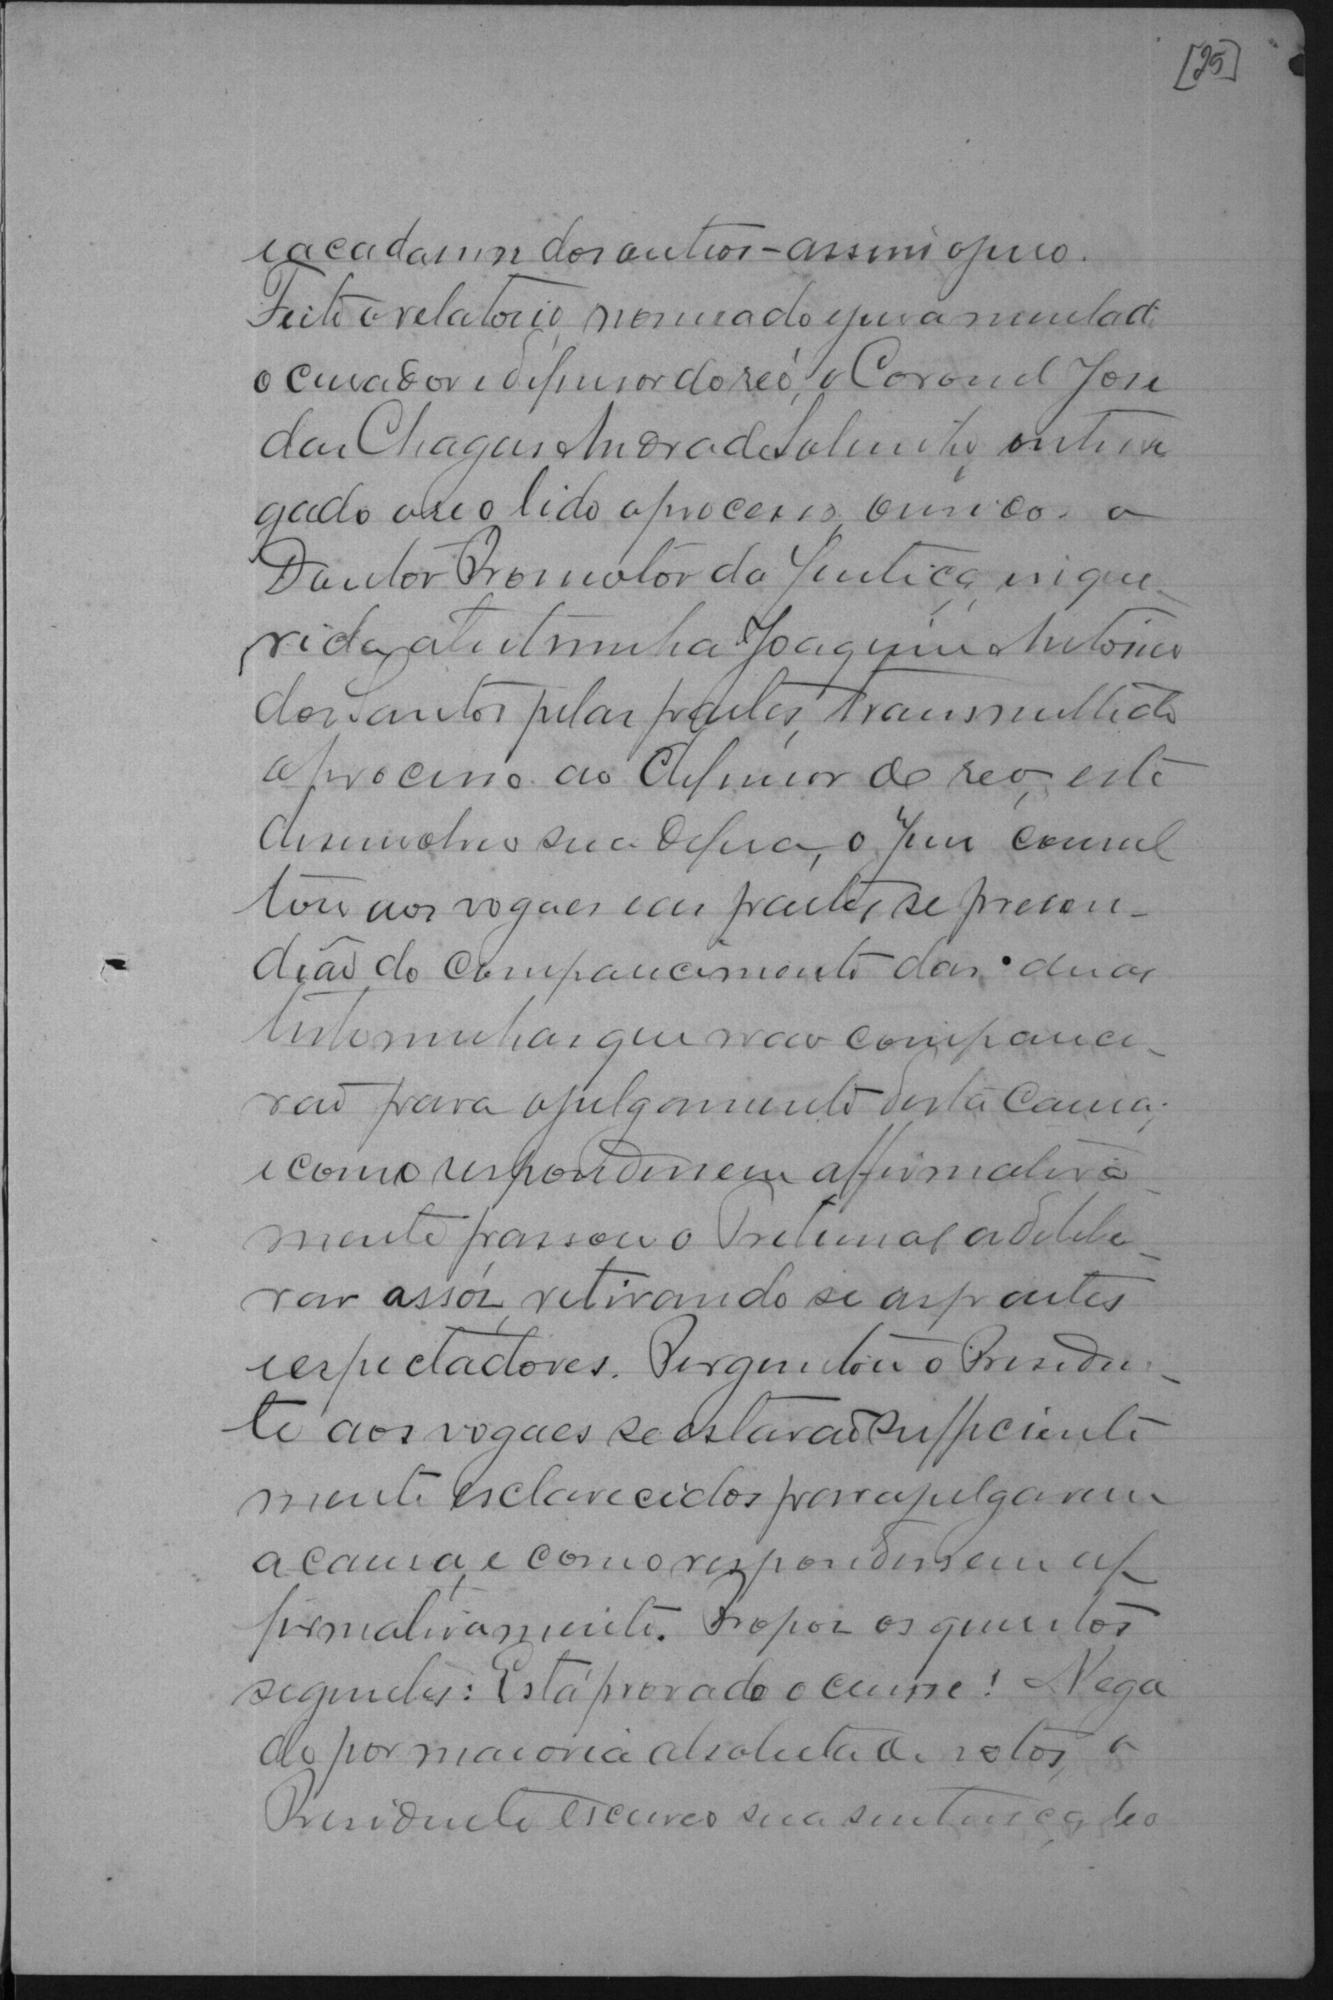 [25]
e a cada um dos outros - assim o juro.
Feito o relatorio, nomeado e juramentado
o curador e defensor do reó, o Coronel Jose
das Chagas Andrade Sobrinho, entre
gado ao reo lido o processo, ouvido o
Doutor Promotor da Justiça, inque-
rida a testemunha Joaquim Antonio
dos Santos pelas partes, transmettido
o processo ao defensor do reo, este
desenvolveo sua defesa, o Juiz consul
tou aos vogaes e as partes, se prescin-
dião do comparecimento das duas
testemunhas que não compare-
rão para o julgamento desta causa;
e como respondessem affirmativa-
mente passou o Tribunal a delibe-
rar assós, retirando se as partes
e espectadores. Perguntou o Presiden-
te aos vogaes se estavão sufficiente
mente esclarecidos para julgarem
a causa, e como respondessem af
firmativamente. Propoz os quesitos
seguintes: Está provado o crime! Nega
do por maioria absoluta de votos, o
Presidente escreveo sua sentença, leo